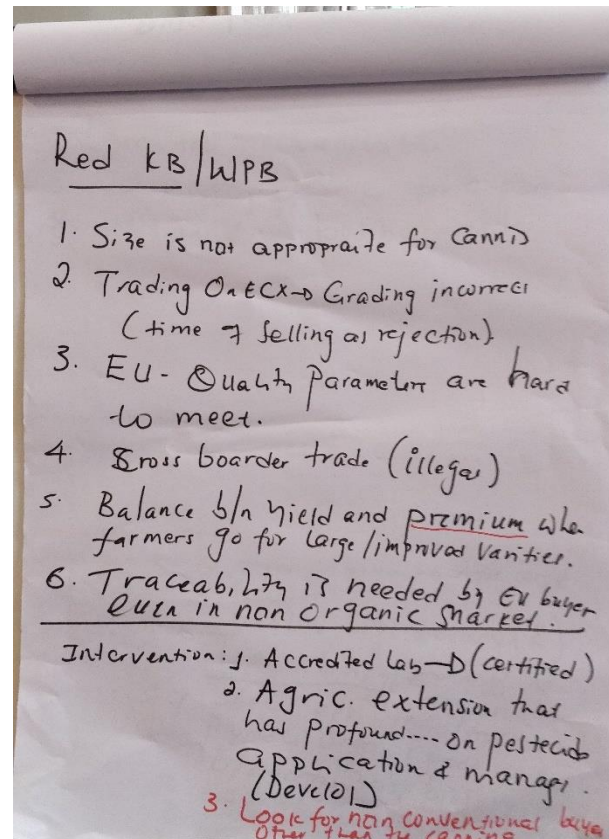 Red KB/WPB
1. Size is not appropraite for Canni
2. Trading On ECX → Grading incorrect
(time of selling as rejection).
3. EU - Quality Parameters are hard
to meet.
4. Cross boarder trade (illegal)
5. Balance b/n yield and premium when
farmers go for large/improved varities.
6. Traceability is needed by EU buyer
even in non organic market.
Intervention: 1. Accredited lab → (certified)
2. Agric. extension that
has profound.... on pestecide
application & manag.
3. Look for non conventional buye
Other than the